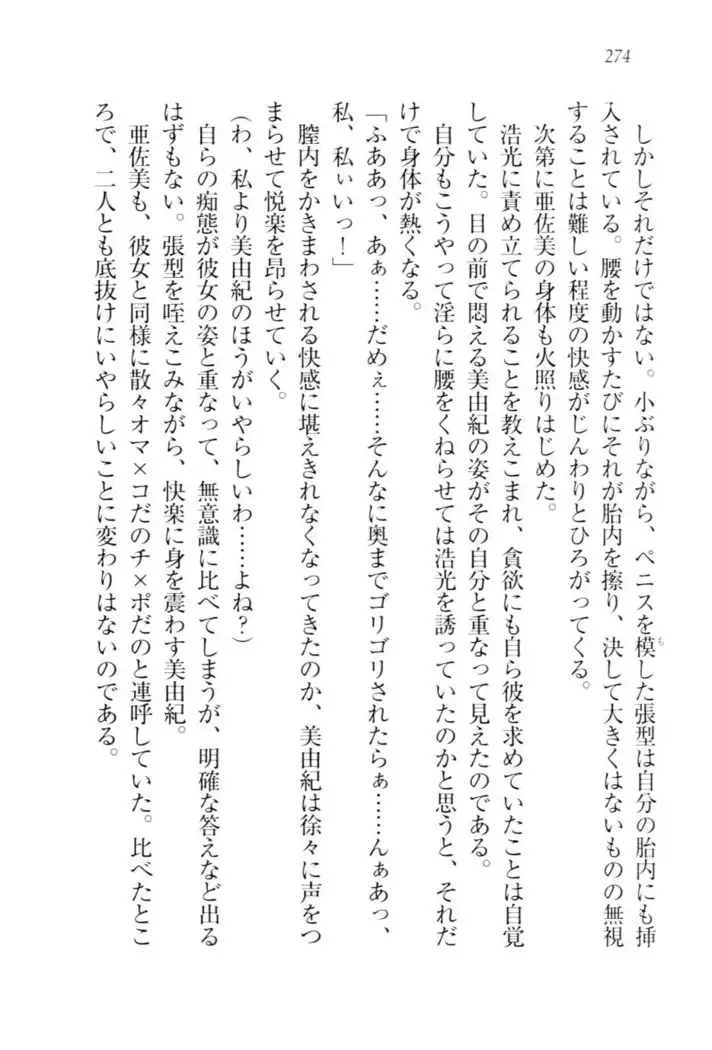 274
しかしそれだけではない。小ぶりながら、ペニスを模した張型は自分の胎内にも挿
入されている。腰を動かすたびにそれが胎内を擦り、決して大きくはないものの無視
することは難しい程度の快感がじんわりとひろがってくる。
次第に亜佐美の身体も火照りはじめた。
浩光に責め立てられることを教えこまれ、貪欲にも自ら彼を求めていたことは自覚
していた。目の前で悶える美由紀の姿がその自分と重なって見えたのである。
自分もこうやって淫らに腰をくねらせては浩光を誘っていたのかと思うと、それだ
けで身体が熱くなる。
「ふああっ、あぁ……だめぇ……そんなに奥までゴリゴリされたらぁ……んぁあっ、
私、私ぃいっ！」
膣内をかきまわされる快感に堪えきれなくなってきたのか、美由紀は徐々に声をつ
まらせて悦楽を昂らせていく。
（わ、私より美由紀のほうがいやらしいわ……よね？）
自らの痴態が彼女の姿と重なって、無意識に比べてしまうが、明確な答えなど出る
はずもない。張型を咥えこみながら、快楽に身を震わす美由紀。
亜佐美も、彼女と同様に散々オマ×コだのチ×ポだのと連呼していた。比べたとこ
ろで、二人とも底抜けにいやらしいことに変わりはないのである。